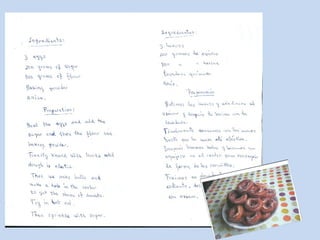 Ingredients:
3 eggs
200 grams of sugar
500 grams of flour
Baking powder
Anise.
Preparation:
Beat the eggs and add the
sugar and then the flour and
baking powder.
Finally knead with hands until
dough is elastic
Then we make balls and
make a hole in the center
to get the shape of donuts.
Fry in hot oil.
Then sprinkle with sugar.
Ingredientes:
3 huevos
200 gramos de azúcar
500 " " harina
Levadura química
Anís.
Preparación
Batimos los huevos y añadimos el
azúcar y después la harina con la
levadura.
Finalmente amasamos con las manos
hasta que la masa esté elástica.
Después hacemos bolas y hacemos un
agujero en el centro para conseguir
la forma de las rosquillas.
Freímos en
caliente,
con azúcar.